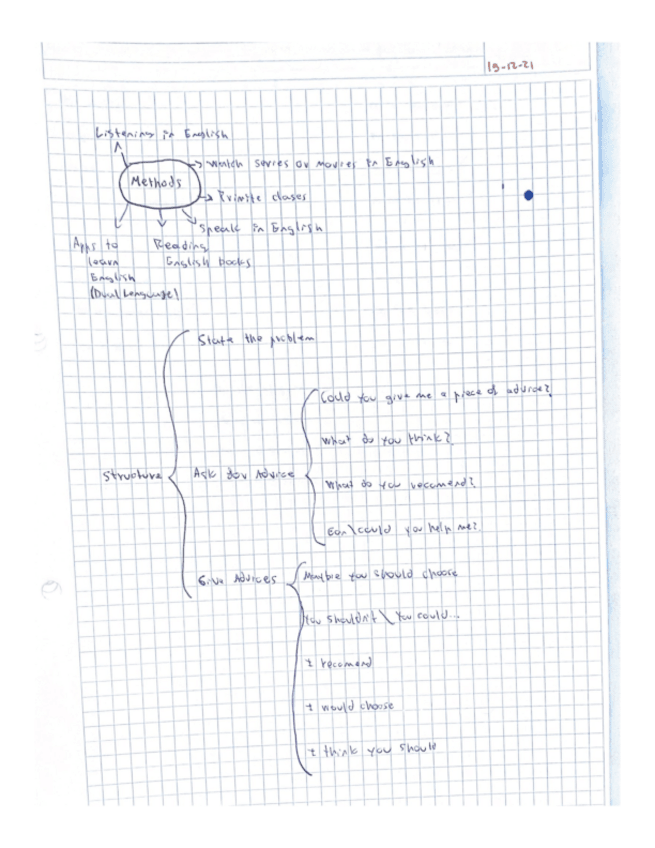 19-12-21
Listening in English
Methods
Watch series or movies in English
Private clases
Speak in English
Apps to
learn
English
(Dual Language)
Reading
English books
State the problem
Structure
Ask for Advice
Could you give me a piece of advice?
What do you think?
What do you recomend?
Can\could you help me?
Give Advices
Maybe you should choose
You shouldn't \ You could...
I recomend
I would choose
I think you should